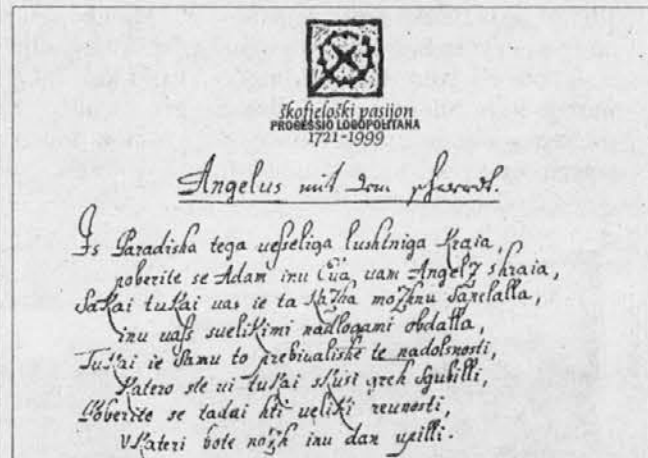 škofjeloški pasijon
PROCESSIO LOCOPOLITANA
1721-1999
Angelus mit dem schwerdt.
Is Paradisha tega uesseliga lushtniga Kraia,
poberite se Adam inu Eua, uam Angelz shraia,
Sakai tukai uas ie ta kazha mozhnu Sapelalla,
inu uass suelikimi nadlogami obdalla,
Tukai ie Samu to prebiualishe te nadolsnosti,
Katero ste ui tukai skusi greh sgubilli,
Poberite se tadai hti ueliki reunosti,
V kateri bote nozh inu dan upilli.